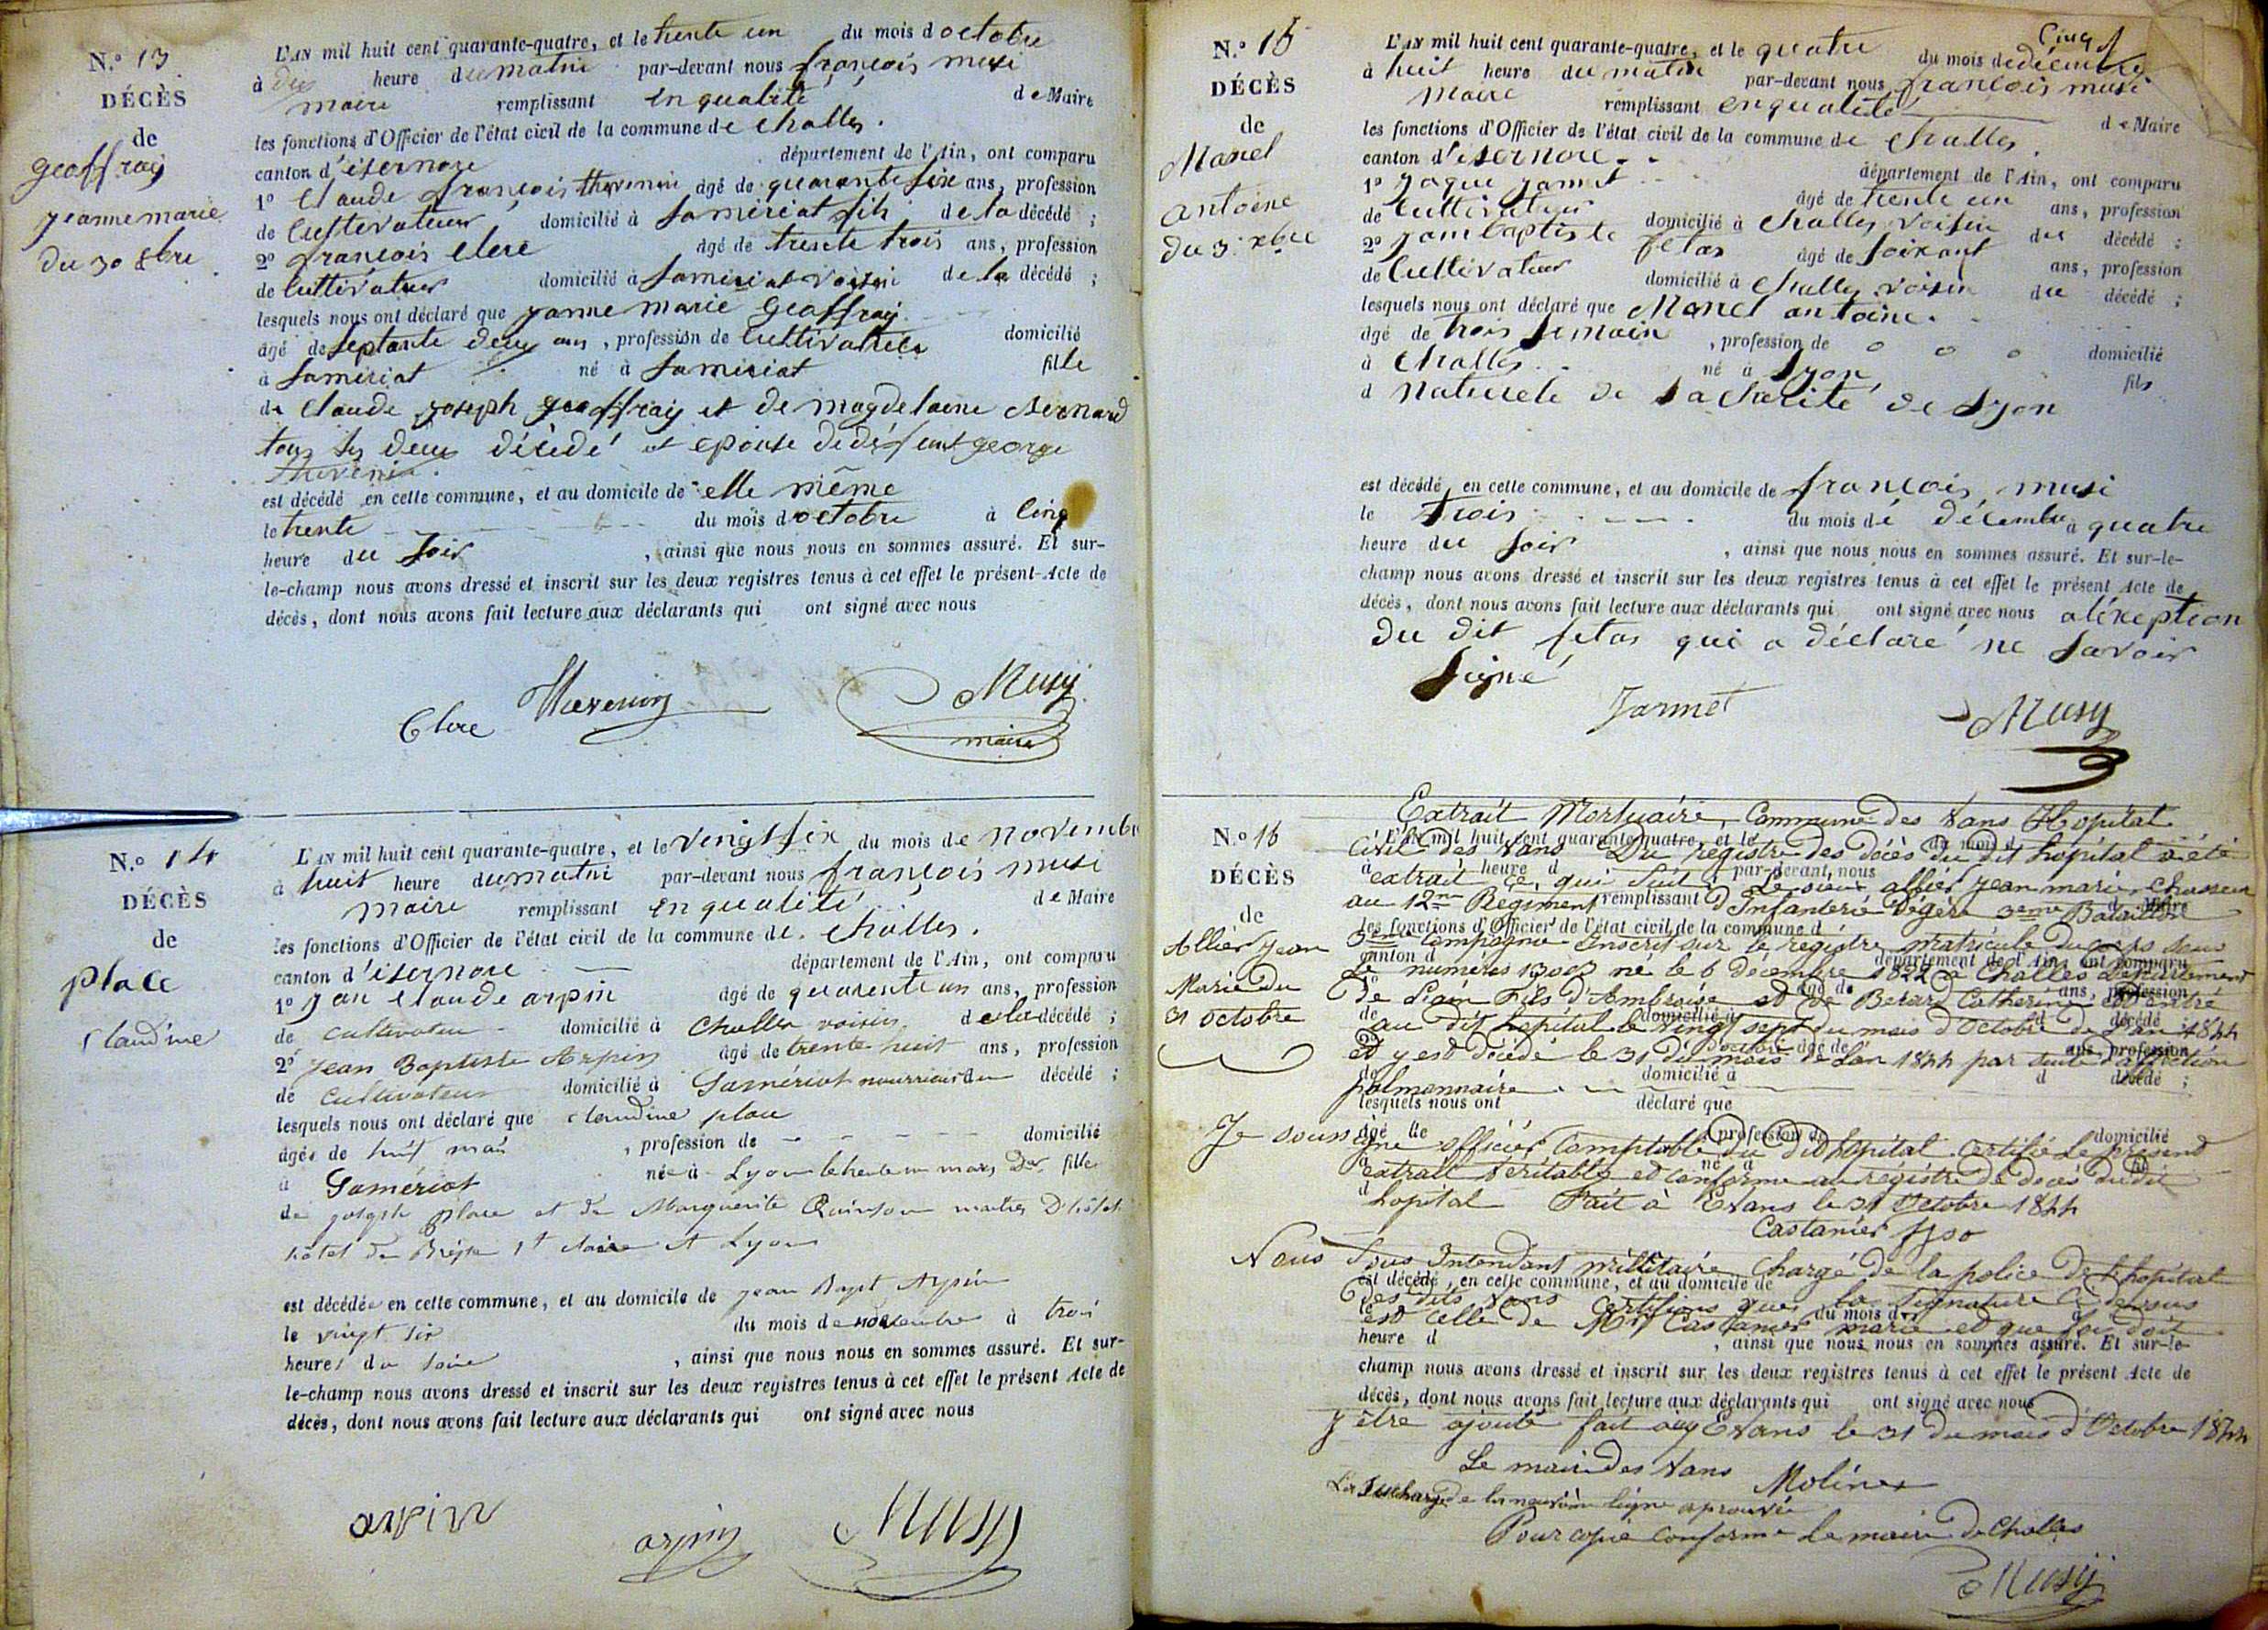 N.° 13
DÉCÈS
de
geoffray
jeanne marie
du 30 8bre
L'AN mil huit cent quarante-quatre, et le trente un du mois d octobre
à dix heure du matin par-devant nous françois musi
maire remplissant en qualité de Maire
les fonctions d'Officier de l'état civil de la commune de challes.
canton d'isernore département de l'Ain, ont comparu
1° Claude françois thevenin âgé de quarante six ans, profession
de Cultivateur domicilié à samériat fils de la décédé ;
2° françois clerc âgé de trente trois ans, profession
de Cultivateur domicilié à samériat voisin de la décédé ;
lesquels nous ont déclaré que janne marie geoffray
âgé de septante deux ans, profession de Cultivatrice domicilié
à samériat né à samériat fille
de Claude joseph geoffray et de magdelaine Bernard
tous les deux décédé et epouse de défunt george
thevenin.
est décédé en cette commune, et au domicile de elle même
le trente du mois d octobre à cinq
heure du soir, ainsi que nous nous en sommes assuré. Et sur-
le-champ nous avons dressé et inscrit sur les deux registres tenus à cet effet le présent Acte de
décès, dont nous avons fait lecture aux déclarants qui ont signé avec nous
Clerc Thevenin Musy
maire
N.° 14
DÉCÈS
de
place
Claudine
L'AN mil huit cent quarante-quatre, et le vingt six du mois de novembre
à huit heure du matin par-devant nous françois musi
maire remplissant en qualité de Maire
les fonctions d'Officier de l'état civil de la commune de challes.
canton d'isernore département de l'Ain, ont comparu
1° jan claude arpin âgé de quarente un ans, profession
de cultivateur domicilié à Challes voisin de la décédé ;
2° Jean Baptiste Arpin âgé de trente huit ans, profession
de cultivateur domicilié à Samériat nourricier du décédé ;
lesquels nous ont déclaré que claudine place
âgée de huit mois, profession de domicilié
à Samériat née à Lyon le trente un mars Der fille
de joseph place et de Marguerite Quinson maitres D'hôtel
hôtel de st claire A Lyon
est décédée en cette commune, et au domicile de jean Bapt Arpin
le vingt six du mois de novembre à trois
heures du soire, ainsi que nous nous en sommes assuré. Et sur-
le-champ nous avons dressé et inscrit sur les deux registres tenus à cet effet le présent Acte de
décès, dont nous avons fait lecture aux déclarants qui ont signé avec nous
arpin arpin Musy
N.° 15
DÉCÈS
de
Manel
antoine
du 3 xbre
Cinq
L'AN mil huit cent quarante-quatre, et le quatre du mois de décembre
à huit heure du matin par-devant nous françois musi
maire remplissant en qualité de Maire
les fonctions d'Officier de l'état civil de la commune de challes.
canton d'isernore département de l'Ain, ont comparu
1° jaque jannet âgé de trente un ans, profession
de Cultivateur domicilié à challes voisin du décédé ;
2° jam baptiste fetas âgé de soixant ans, profession
de Cultivateur domicilié à challes voisin du décédé ;
lesquels nous ont déclaré que Manel antoine.
âgé de trois semain, profession de o o o domicilié
à challes né à Lyon fils
d naturele de la Sarité de Lyon
est décédé en cette commune, et au domicile de françois musi
le trois du mois de décembre à quatre
heure du soir, ainsi que nous nous en sommes assuré. Et sur-le-
champ nous avons dressé et inscrit sur les deux registres tenus à cet effet le présent Acte de
décès, dont nous avons fait lecture aux déclarants qui ont signé avec nous aléxeption
du dit fetas qui a déclaré ne savoir
signé
Jannet Musy
N.° 16
DÉCÈS
de
Allier Jean
Marie du
31 octobre
Extrait Mortuaire, Commune des Vans Hopital
Civil des Vans Du registre des décès du dit hopital a été
extrait ce qui suit : Le sieur allier jean marie chasseur
au 12me Régiment d'Infanterie légère 3eme Bataillon
3me Compagnie Inscrit sur le registre matricule du corps sous
le numéros né le 6 décembre 1822 à Challes Département
de l'ain fils d'Ambroise et de Berard Catherine est entré
au dit hopital le vingt sept du mois d'Octobre de l'an 1844
et y est décédé le 31 du mois d'octobre de l'an 1844 par suite d'affection
pulmonnaire.
Je soussigné officier comptable du dit hopital certifie le présent
extrait véritable et conforme au registre de décès du dit
hopital Fait à Evans le 31 Octobre 1844
Castanier
Nous Sous Intendant millitaire chargé de la police de l'hopital
des dits Vans certifions que la signature ci dessus
est celle de Mr Castanier marie et que foi doit
heure d, ainsi que nous nous en sommes assuré. Et sur-le-
champ nous avons dressé et inscrit sur les deux registres tenus à cet effet le présent Acte de
décès, dont nous avons fait lecture aux déclarants qui ont signé avec nous
y être ajouté fait aux Evans le 31 du mois d'Octobre 1844
Le maire des Vans Molines
La Surcharge de la neuvième ligne aprouvée
Pour copie conforme Le maire de Challes
Musy